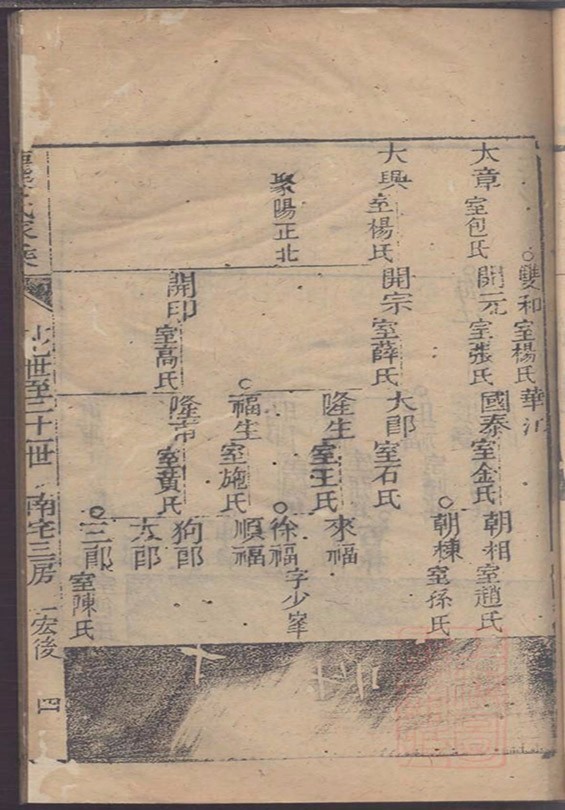 雙和 室楊氏 華沠
大章 室包氏 開元 室張氏 國泰 室金氏 朝相 室趙氏
朝棟 室孫氏
大興 室楊氏 開宗 室薛氏 大郎 室石氏
隆生 室王氏 來福
聚陽正北 徐福 字少峯
福生 室施氏 順福
開印 室高氏 隆市 室黃氏 狗郎
大郎
三郎 室陳氏
世至二十世 南宅三房 一宏後 四